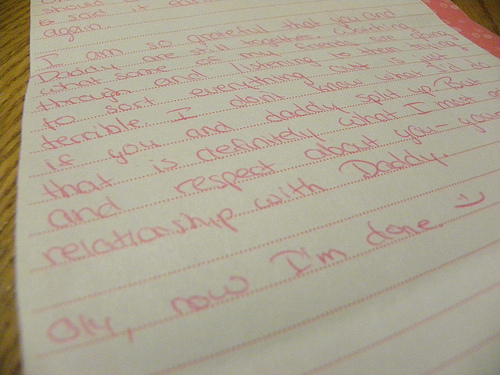 should
& said it
again.
I am so grateful that you and
Daddy are still together. Watching
what some of my friends are going
through and listening to them trying
to sort everything out is just
terrible. I don't know what I'd do
if you and daddy split up. But
that is definitely what I most
and respect about you- your
relationship with Daddy.
Ok, now I'm done.